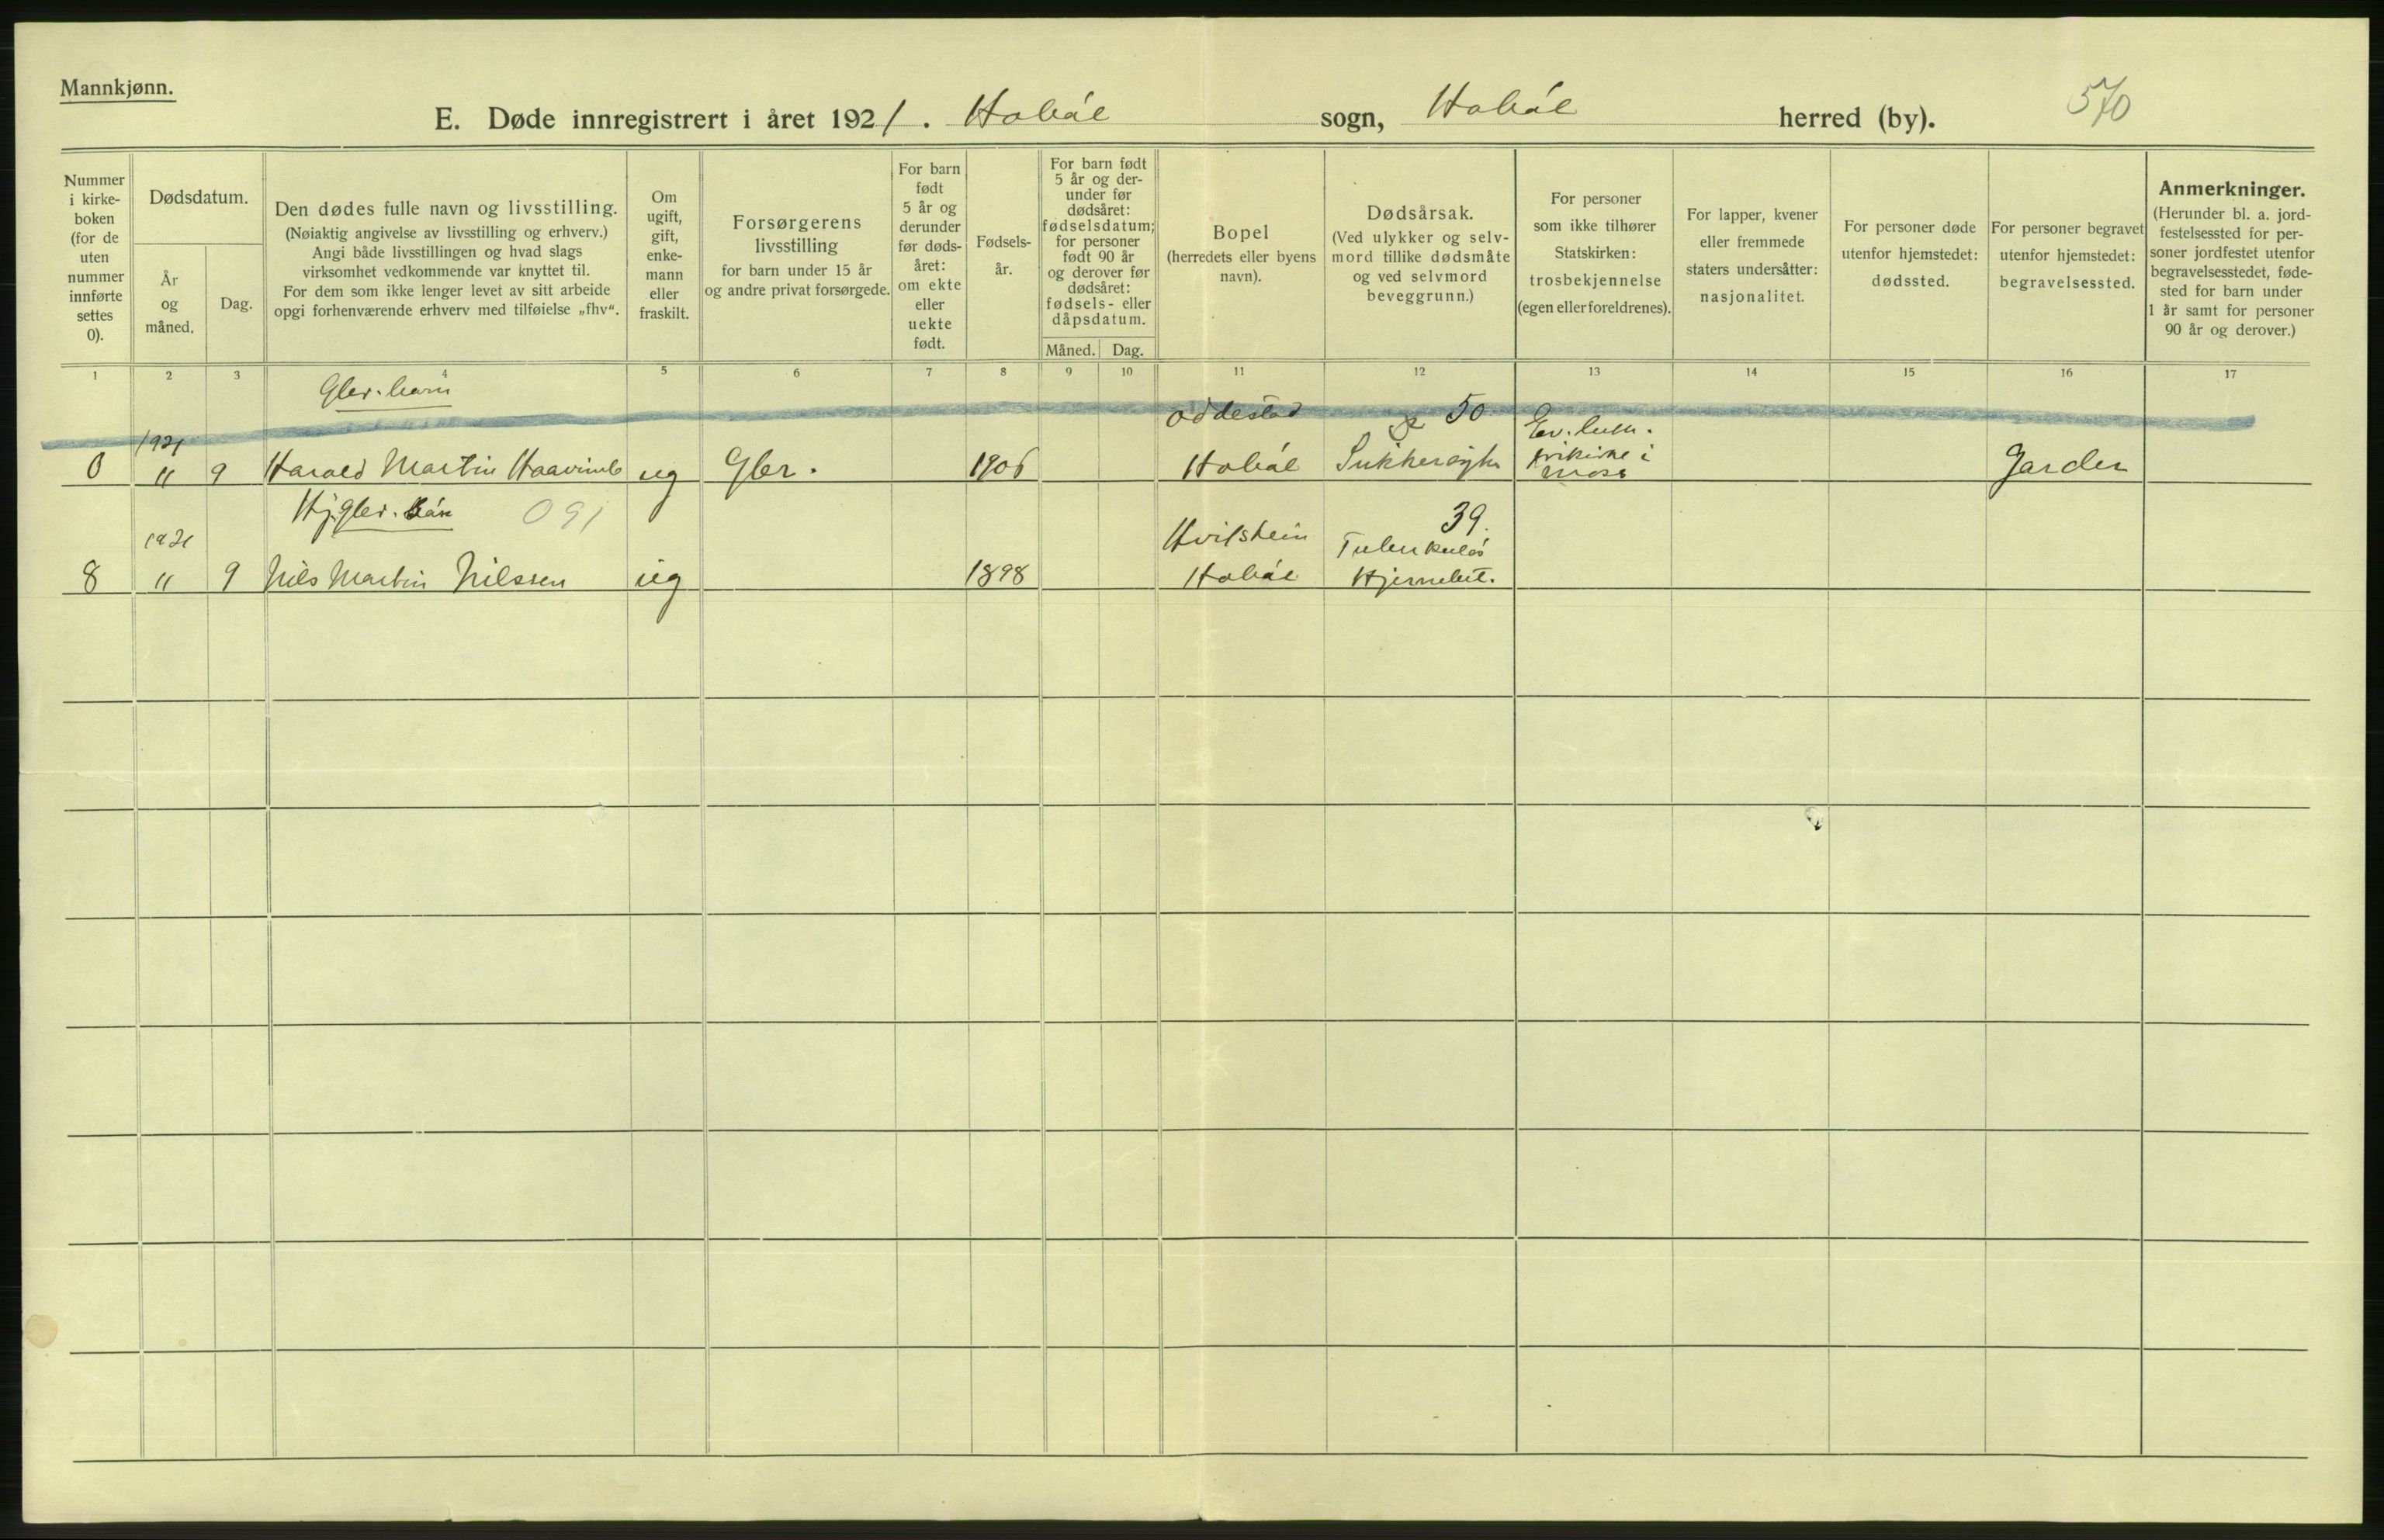 Mannkjønn.
E. Døde innregistrert i året 1921. Hobøl sogn, Hobøl herred (by). 570
Nummer i kirke-
boken
(for de
uten
nummer
innførte
settes
0).
Dødsdatum.
År
og
måned.
Dag.
Den dødes fulle navn og livsstilling.
(Nøiaktig angivelse av livsstilling og erhverv.)
Angi både livsstillingen og hvad slags
virksomhet vedkommende var knyttet til.
For dem som ikke lenger levet av sitt arbeide
opgi forhenværende erhverv med tilføielse „fhv“.
Om
ugift,
gift,
enke-
mann
eller
fraskilt.
Forsørgerens
livsstilling
for barn under 15 år
og andre privat forsørgede.
For barn
født
5 år og
derunder
før døds-
året:
om ekte
eller
uekte
født.
Fødsels-
år.
For barn født
5 år og der-
under før
dødsåret:
fødselsdatum;
for personer
født 90 år
og derover før
dødsåret:
fødsels- eller
dåpsdatum.
Måned. Dag.
Bopel
(herredets eller byens
navn).
Dødsårsak.
(Ved ulykker og selv-
mord tillike dødsmåte
og ved selvmord
beveggrunn.)
For personer
som ikke tilhører
Statskirken:
trosbekjennelse
(egen eller foreldrenes).
For lapper, kvener
eller fremmede
staters undersåtter:
nasjonalitet.
For personer døde
utenfor hjemstedet:
dødssted.
For personer begravet
utenfor hjemstedet:
begravelsessted.
Anmerkninger.
(Herunder bl. a. jord-
festelsessted for per-
soner jordfestet utenfor
begravelsesstedet, føde-
sted for barn under
1 år samt for personer
90 år og derover.)
1 2 3 4 5 6 7 8 9 10 11 12 13 14 15 16 17
Gbr. barn
Oddestad 50 Ev. luth.
1921 frikirke i
0 " 9 Harald Martin ug Gbr. 1906 Hobøl Sukkersyke Moss Garder
091 39.
1921 Hvitstein Tuberkuløs
8 " 9 Nils Martin Nilssen ug 1898 Hobøl Hjernebet.